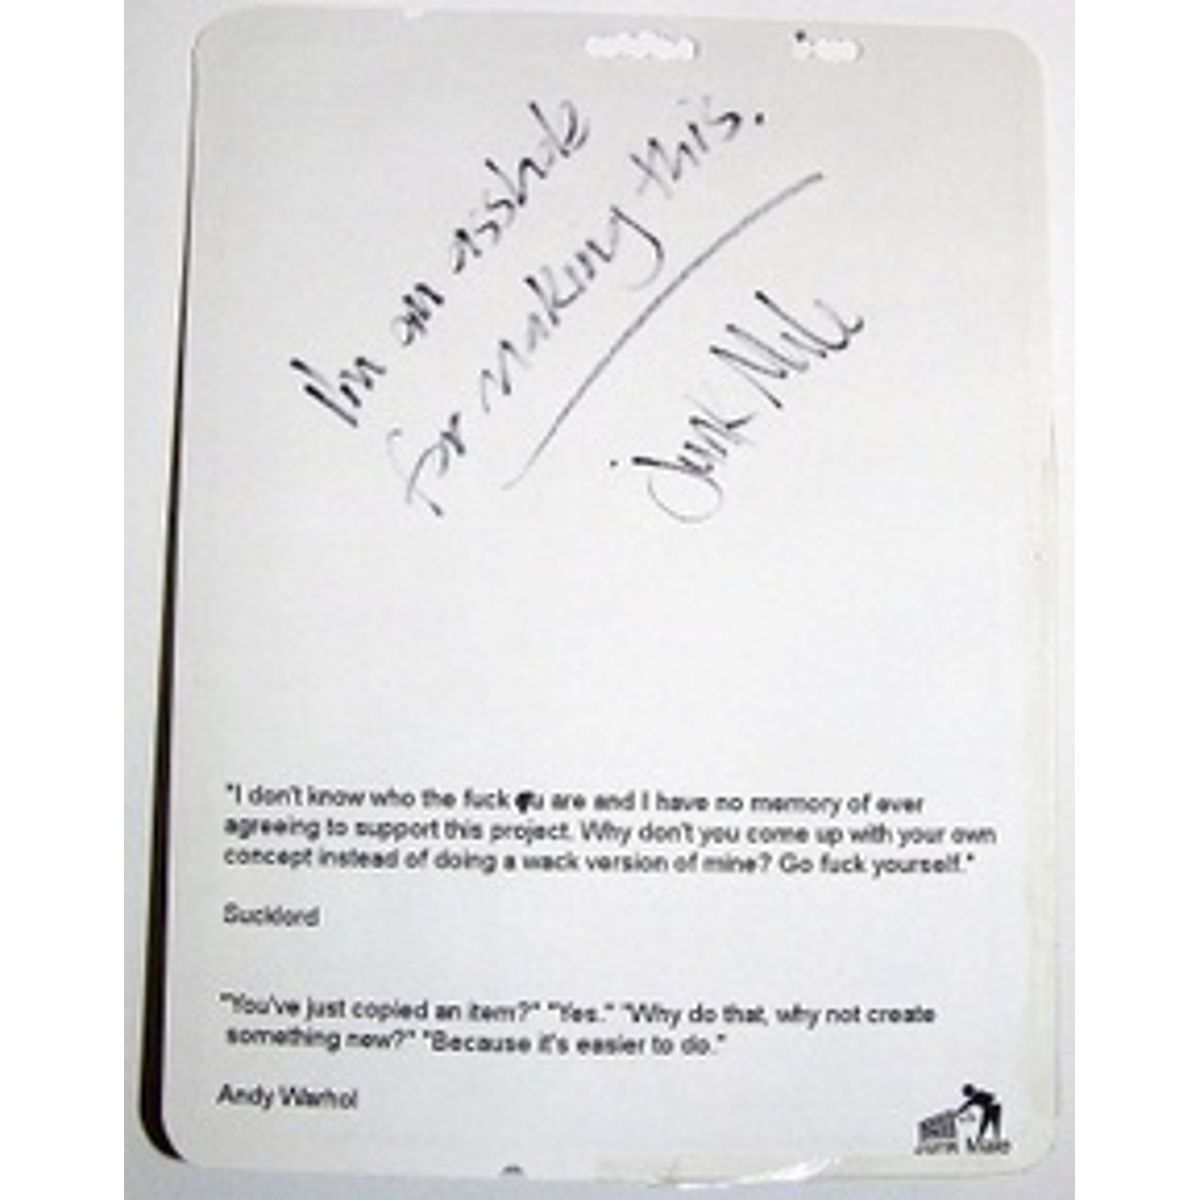 I'm an asshole
for making this.
Junk Male
"I don't know who the fuck you are and I have no memory of ever
agreeing to support this project. Why don't you come up with your own
concept instead of doing a wack version of mine? Go fuck yourself."
Sucklord
"You've just copied an item?" "Yes." "Why do that, why not create
something new?" "Because it's easier to do."
Andy Warhol
Junk Male